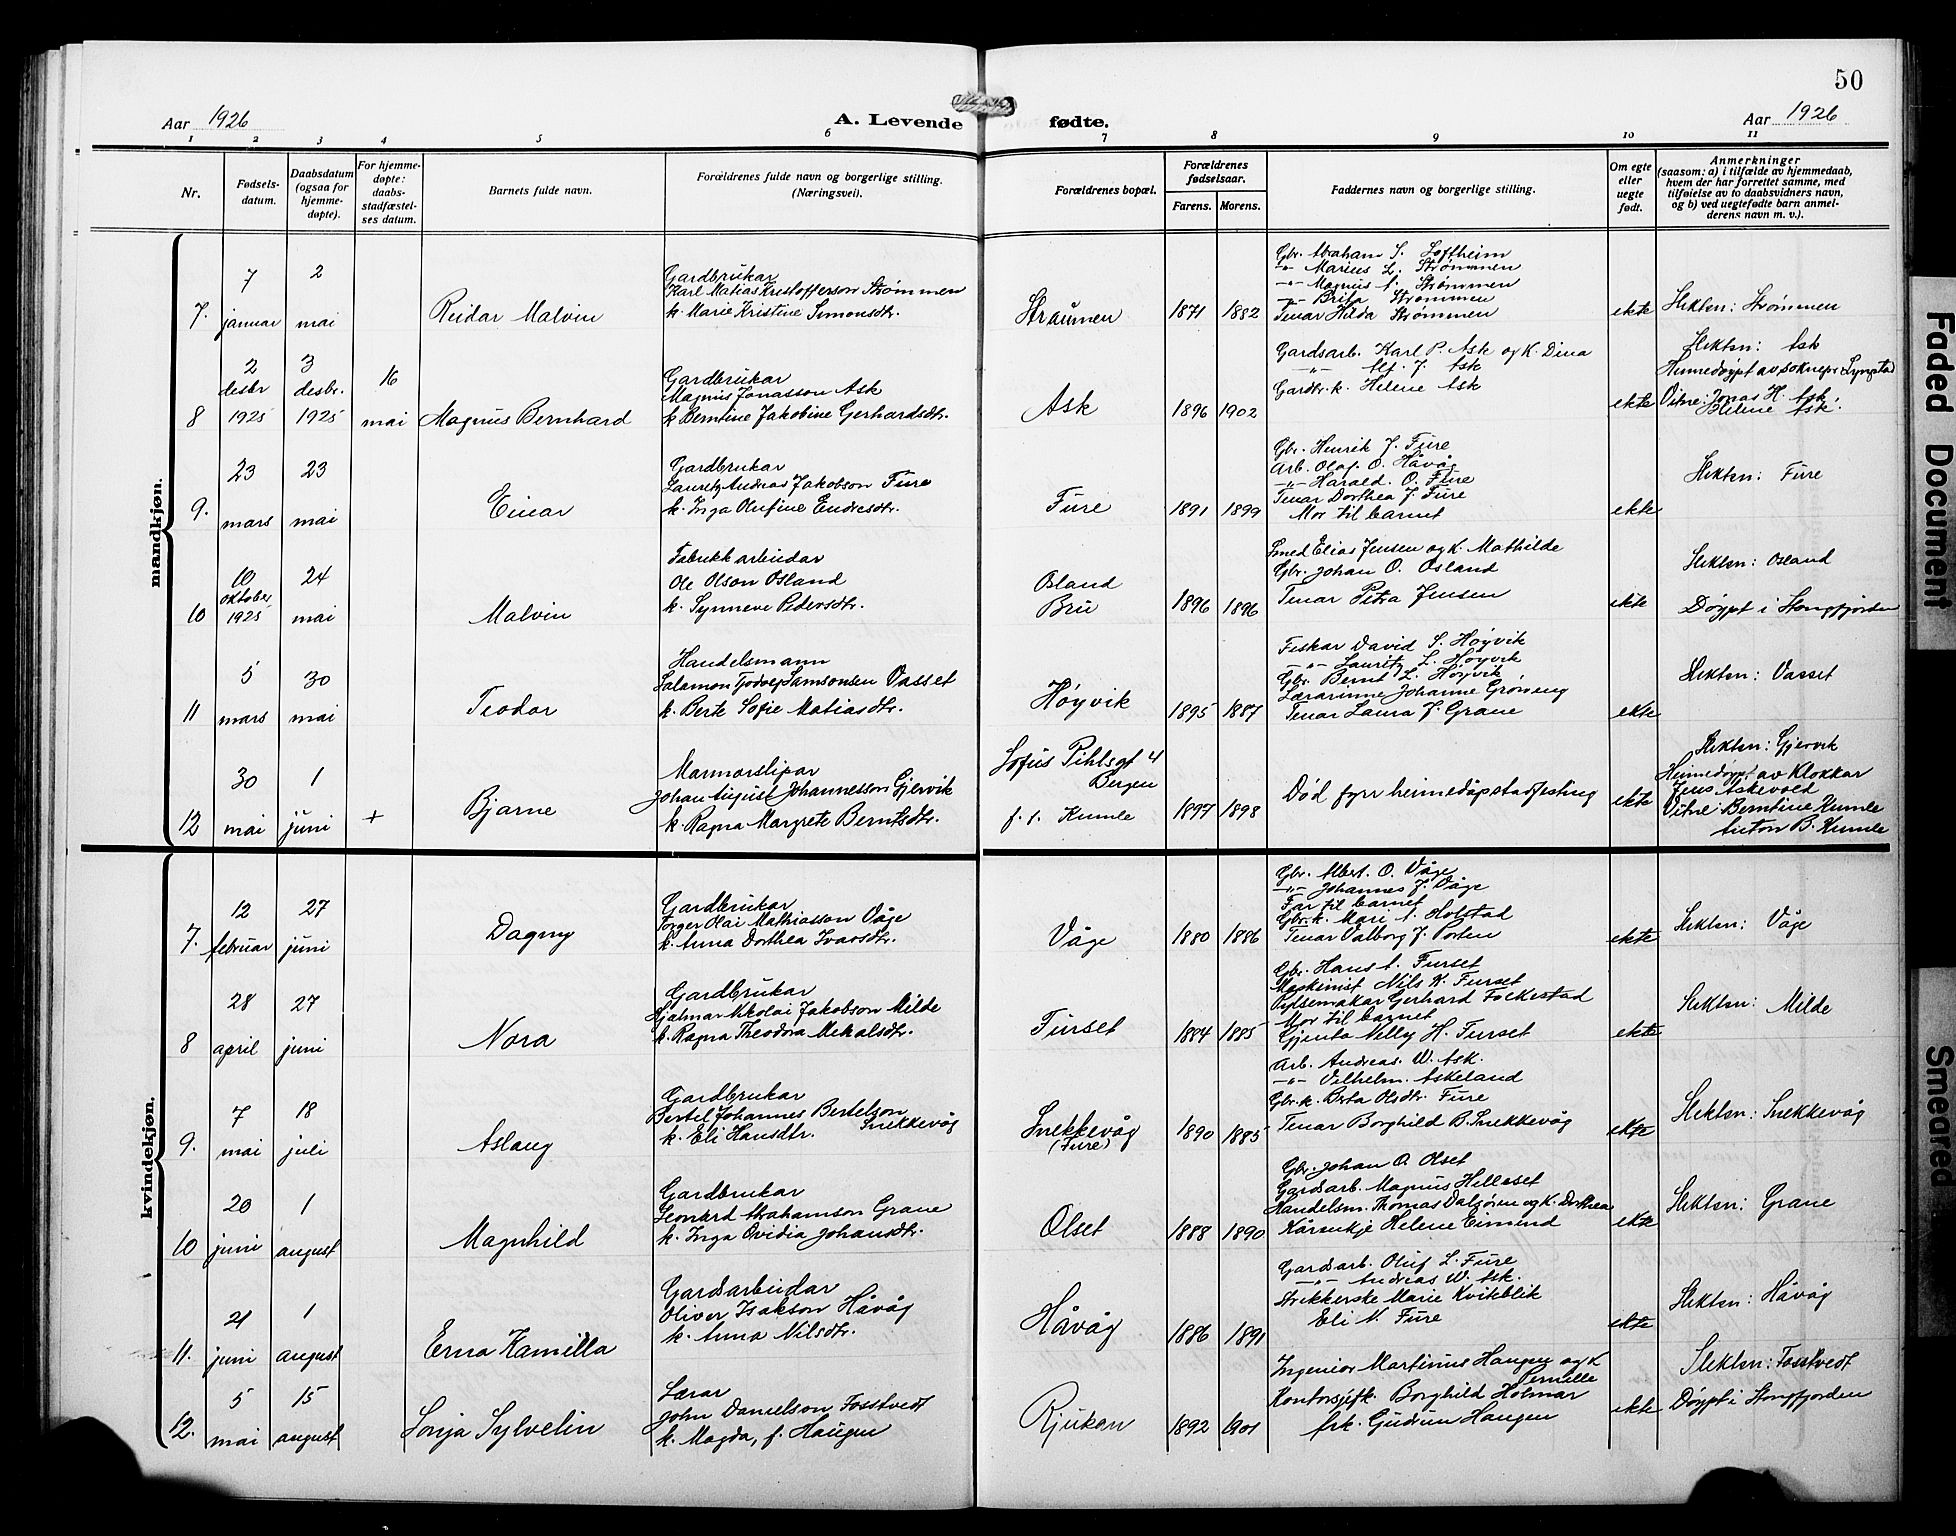 50
Aar 1926
A. Levende fødte.
Aar 1926
1 2 3 4 5 6 7 8 9 10 11
Nr.
Fødsels-
datum.
Daabsdatum
(ogsaa for
hjemme-
døpte).
For hjemme-
døpte:
daabs-
stadfæstel-
ses datum.
Barnets fulde navn.
Forældrenes fulde navn og borgerlige stilling.
(Næringsvei).
Forældrenes bopæl.
Forældrenes
fødselsaar.
Farens. Morens.
Faddernes navn og borgerlige stilling.
Om egte
eller
uegte
født.
Anmerkninger
(saasom: a) i tilfælde av hjemmedaab,
hvem der har forrettet samme, med
tilføielse av to daabsvidners navn,
og b) ved uegtefødte barn anmel-
derens navn m. v.).
mandkjøn.
7. 7 januar 2 mai
Reidar Malvin
Gardbrukar
Karl Matias Kristofferson Strømmen
k. Marie Kristine Simonsdtr.
Straumen
1871 1882
Gbr. Abraham S. Loftheim
-"- Marius L. Strømmen
-"- Magnus A. Strømmen
-"- Brita Strømmen
Tenar Hilda Strømmen
ekte
Slektsn: Strømmen
8 2 desbr 1925 3 desbr. 1925 16 mai
Magnus Bernhard
Gardbrukar
Magnus Jonasson Ask
k. Berntine Jakobine Gerhardsdtr.
Ask
1896 1902
Gardsarb. Karl P. Ask og K. Dina
-"- Alf. J. Ask
Gardbr. k. Helene Ask
ekte
Slektsn: Ask
Heimedøypt av sokнepr. Lyngstad
Vitne: Jonas H. Ask
Helene Ask.
9. 23 mars 23 mai
Einar
Gardbrukar
Lauritz Andreas Jakobson Fure
k. Inga Olufine Endresdtr.
Fure
1891 1899
Gbr. Henrik J. Fure
Arb. Olaf O. Håvåg
-"- Harald. O. Fure
Tenar Dorthea J. Fure
Mor til barnet
ekte
Slektsn: Fure
10 10 oktober 1925 24 mai
Malvin
Fabrikkarbeidar
Ole Olson Osland
k. Synneve Pedersdtr.
Osland
Bru
1896 1896
Smed Elias Jensen og K. Mathilde
Gbr. Johan O. Osland
Tenar Petra Jensen
ekte
Slektsn: Osland
Døypt i Stongfjorden
11 5 mars 30 mai
Teodor
Handelsmann
Salamon Tjodvey Samsonsen Vasset
k. Berte Sofie Matiasdtr.
Høyvik
1895 1887
Fiskar David S. Høyvik
-"- Lauritz L. Høyvik
Gbr. Bernt L. Høyvik
Lærarinne Johanne Grøneng
Tenar Laura J. Grane
ekte
Slektsn: Vasset
12 30 mai 1 juni +
Bjarne
Marmorslipar
Johan August Johannesson Gjervik
k. Ragna Margrete Berntsdtr.
Sofus Pihlsgt 4
Bergen
f. t. Kumle
1897 1898
Død fyrr heimedåpstadfesting
ekte
Slektsn: Gjervik
Heimedøypt av Klokkar
Jens Askevold
Vitne: Berntine Kumle
Anton B. Kumle
kvindekjøn.
7. 12 februar 27 juni
Dagny
Gardbrukar
Torger Olai Mathiasson Våge
k. Anna Dorthea Ivarsdtr.
Våge
1880 1886
Gbr. Albert. O. Våge
-"- Johannes J. Våge
Far til barnet
Gbr. k. Mari A. Holstad
Tenar Valborg J. Porten
ekte
Slektsn: Våge
8 28 april 27 juni
Nora
Gardbrukar
Hjalmar Nikolai Jakobson Milde
k. Ragna Theodora Mekalsdtr.
Furset
1884 1885
Gbr. Hans A. Furset
Maskinist Nils K. Furset
Pylsemakar Gerhard Folkestad
Mor til barnet
Gjenta Nelly H. Furset
ekte
Slektsn: Milde
9. 7 mai 18 juli
Aslaug
Gardbrukar
Bertel Johannes Bertelson
Snekkevåg
k. Eli Hansdtr.
Snekkevåg
(Fure)
1890 1885
Arb. Andreas. W. Ask.
-"- Vilhelm. Askeland
Gbr. k. Berta Olsdtr. Fure
Tenar Borghild B. Snekkevåg
ekte
Slektsn: Snekkevåg
10 20 juni 1 august
Magnhild
Gardbrukar
Leonard Abrahamson Grane
k. Inga Ovidia Johansdtr.
Olset
1888 1890
Gbr. Johan O. Olset
Gardsarb. Magnus Helleset
Handelsm. Thomas Dalsøren og K. Dorthea
Kårenkje Helene Eimind
ekte
Slektsn: Grane
11. 21 juni 1 august
Erna Kamilla
Gardsarbeidar
Oliver Isakson Håvåg
k. Anna Nilsdtr.
Håvåg
1886 1891
Gardsarb. Oluf L. Fure
-"- Andreas W. Ask.
Strikkerske Marie Kviteblik
Eli A. Fure
ekte
Slektsn: Håvåg
12. 5 mai 15 august
Sonja Sylvelin
Lærar
John Danielson Fosstvedt
k. Magda, f. Haugen
Rjukan
1892 1901
Ingeniør Martinus Haugen og K
Pernille
Kontorsjef k. Borghild Holmar
frk. Gudrun Haugen
ekte
Slektsn: Fosstvedt
Døypt i Stongfjorden
Faded Document
Smeared